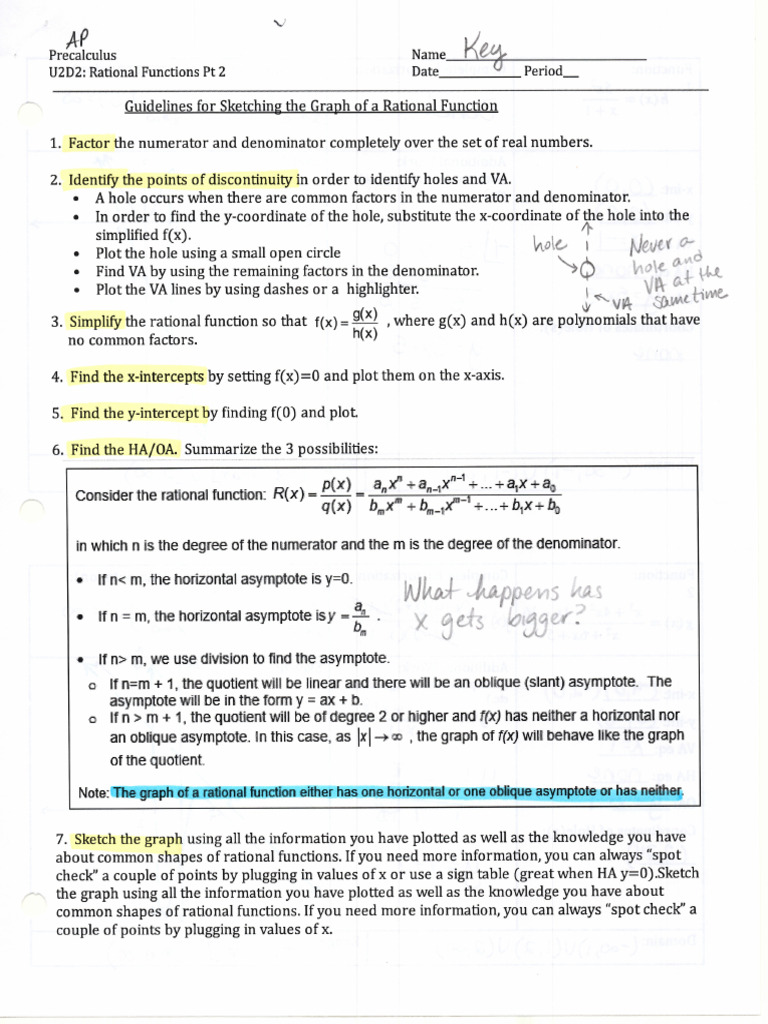 AP
Precalculus
Name Key
U2D2: Rational Functions Pt 2
Date Period
Guidelines for Sketching the Graph of a Rational Function
1. Factor the numerator and denominator completely over the set of real numbers.
2. Identify the points of discontinuity in order to identify holes and VA.
• A hole occurs when there are common factors in the numerator and denominator.
• In order to find the y-coordinate of the hole, substitute the x-coordinate of the hole into the
simplified f(x).
• Plot the hole using a small open circle
• Find VA by using the remaining factors in the denominator.
• Plot the VA lines by using dashes or a highlighter.
hole
VA
Never a
hole and
VA at the
same time
3. Simplify the rational function so that f(x) = g(x)/h(x) , where g(x) and h(x) are polynomials that have
no common factors.
4. Find the x-intercepts by setting f(x)=0 and plot them on the x-axis.
5. Find the y-intercept by finding f(0) and plot.
6. Find the HA/OA. Summarize the 3 possibilities:
Consider the rational function: R(x) = p(x)/q(x) = (aₙxⁿ + aₙ₋₁xⁿ⁻¹ + ... + a₁x + a₀)/(bₘxᵐ + bₘ₋₁xᵐ⁻¹ + ... + b₁x + b₀)
in which n is the degree of the numerator and the m is the degree of the denominator.
• If n< m, the horizontal asymptote is y=0.
• If n = m, the horizontal asymptote is y = aₙ/bₘ .
What happens has
x gets bigger?
• If n> m, we use division to find the asymptote.
o If n=m + 1, the quotient will be linear and there will be an oblique (slant) asymptote. The
asymptote will be in the form y = ax + b.
o If n > m + 1, the quotient will be of degree 2 or higher and f(x) has neither a horizontal nor
an oblique asymptote. In this case, as |x| → ∞ , the graph of f(x) will behave like the graph
of the quotient.
Note: The graph of a rational function either has one horizontal or one oblique asymptote or has neither.
7. Sketch the graph using all the information you have plotted as well as the knowledge you have
about common shapes of rational functions. If you need more information, you can always “spot
check” a couple of points by plugging in values of x or use a sign table (great when HA y=0).Sketch
the graph using all the information you have plotted as well as the knowledge you have about
common shapes of rational functions. If you need more information, you can always “spot check” a
couple of points by plugging in values of x.